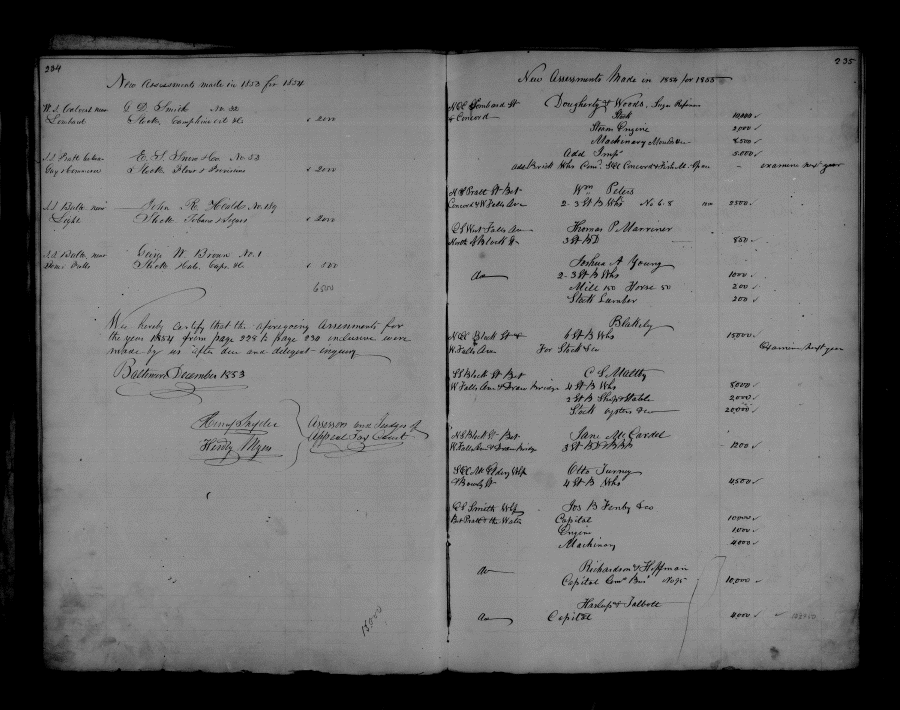 234
New Assessments made in 1853 for 1854
W. S. Calvert near G. D. Smith No. 32
Lombard Stock, Camphine oil &c 2000
S. S. Pratt E. S. & Co. No. 53
Gay & Commerce Stock Flour & Provisions 2000
S. S. Balto near John R. No. 189
Light Stock Tobacco & Segars 2000
S. S. Balto near Geo. W. Brown No. 1
Stock Hats, Caps &c 500
6500
We hereby certify that the aforegoing Assessments for
the year 1854 from page 228 to page 230 inclusive were
made by us after due and diligent inquiry
Baltimore December 1853
Henry Snyder
Henry Myers
Assessors and Judges of
Appeal Tax Court
13000
235
New Assessments Made in 1854 for 1855
N.E. Lombard St Dougherty & Woods, Sugar Refiners
& Concord Stock 10,000
Steam Engine 2,000
Machinery 8500
Add Imp 5000
add Brick Whs Conc. S.E. Concord & Fish M. Space - examine next year
N.S. Pratt St Bet Wm Peters
Concord & W. Falls Ave 2-3 St B Whs No 6.8 2500
E.S. West Falls Ave Thomas P. Marriner
North of Block St 3 St B D 850
Joshua A Young
do 2-3 St B Whs 1000
Mill 150 Horse 50 200
Stock Lumber 200
Blakely
N.E. Block St & 6 St B Whs 15000
W. Falls Ave For Stock &c Examine next year
S.S. Block St Bet C. S. Maltby
W. Falls Ave & Draw Bridge 4 St B Whs 8,000
2 St B Shop & Stable 2,000
Stock oysters &c 20,000
N.S. Block St Bet Jane McCardel
W. Falls Ave & Draw Bridge 3 St B D & B B 1200
S.E. McElderry Whf Otto Turney
4 St B Whs 4500
E.S. Smiths Whf Jos B Fenby & Co
Bet Pratt & the Water Capital 10,000
Engine 1,000
Machinery 4000
do Richardson & Hoffman
Capital Com. Bus. No 95 10,000
Haslup & Talbott
do Capital 4000